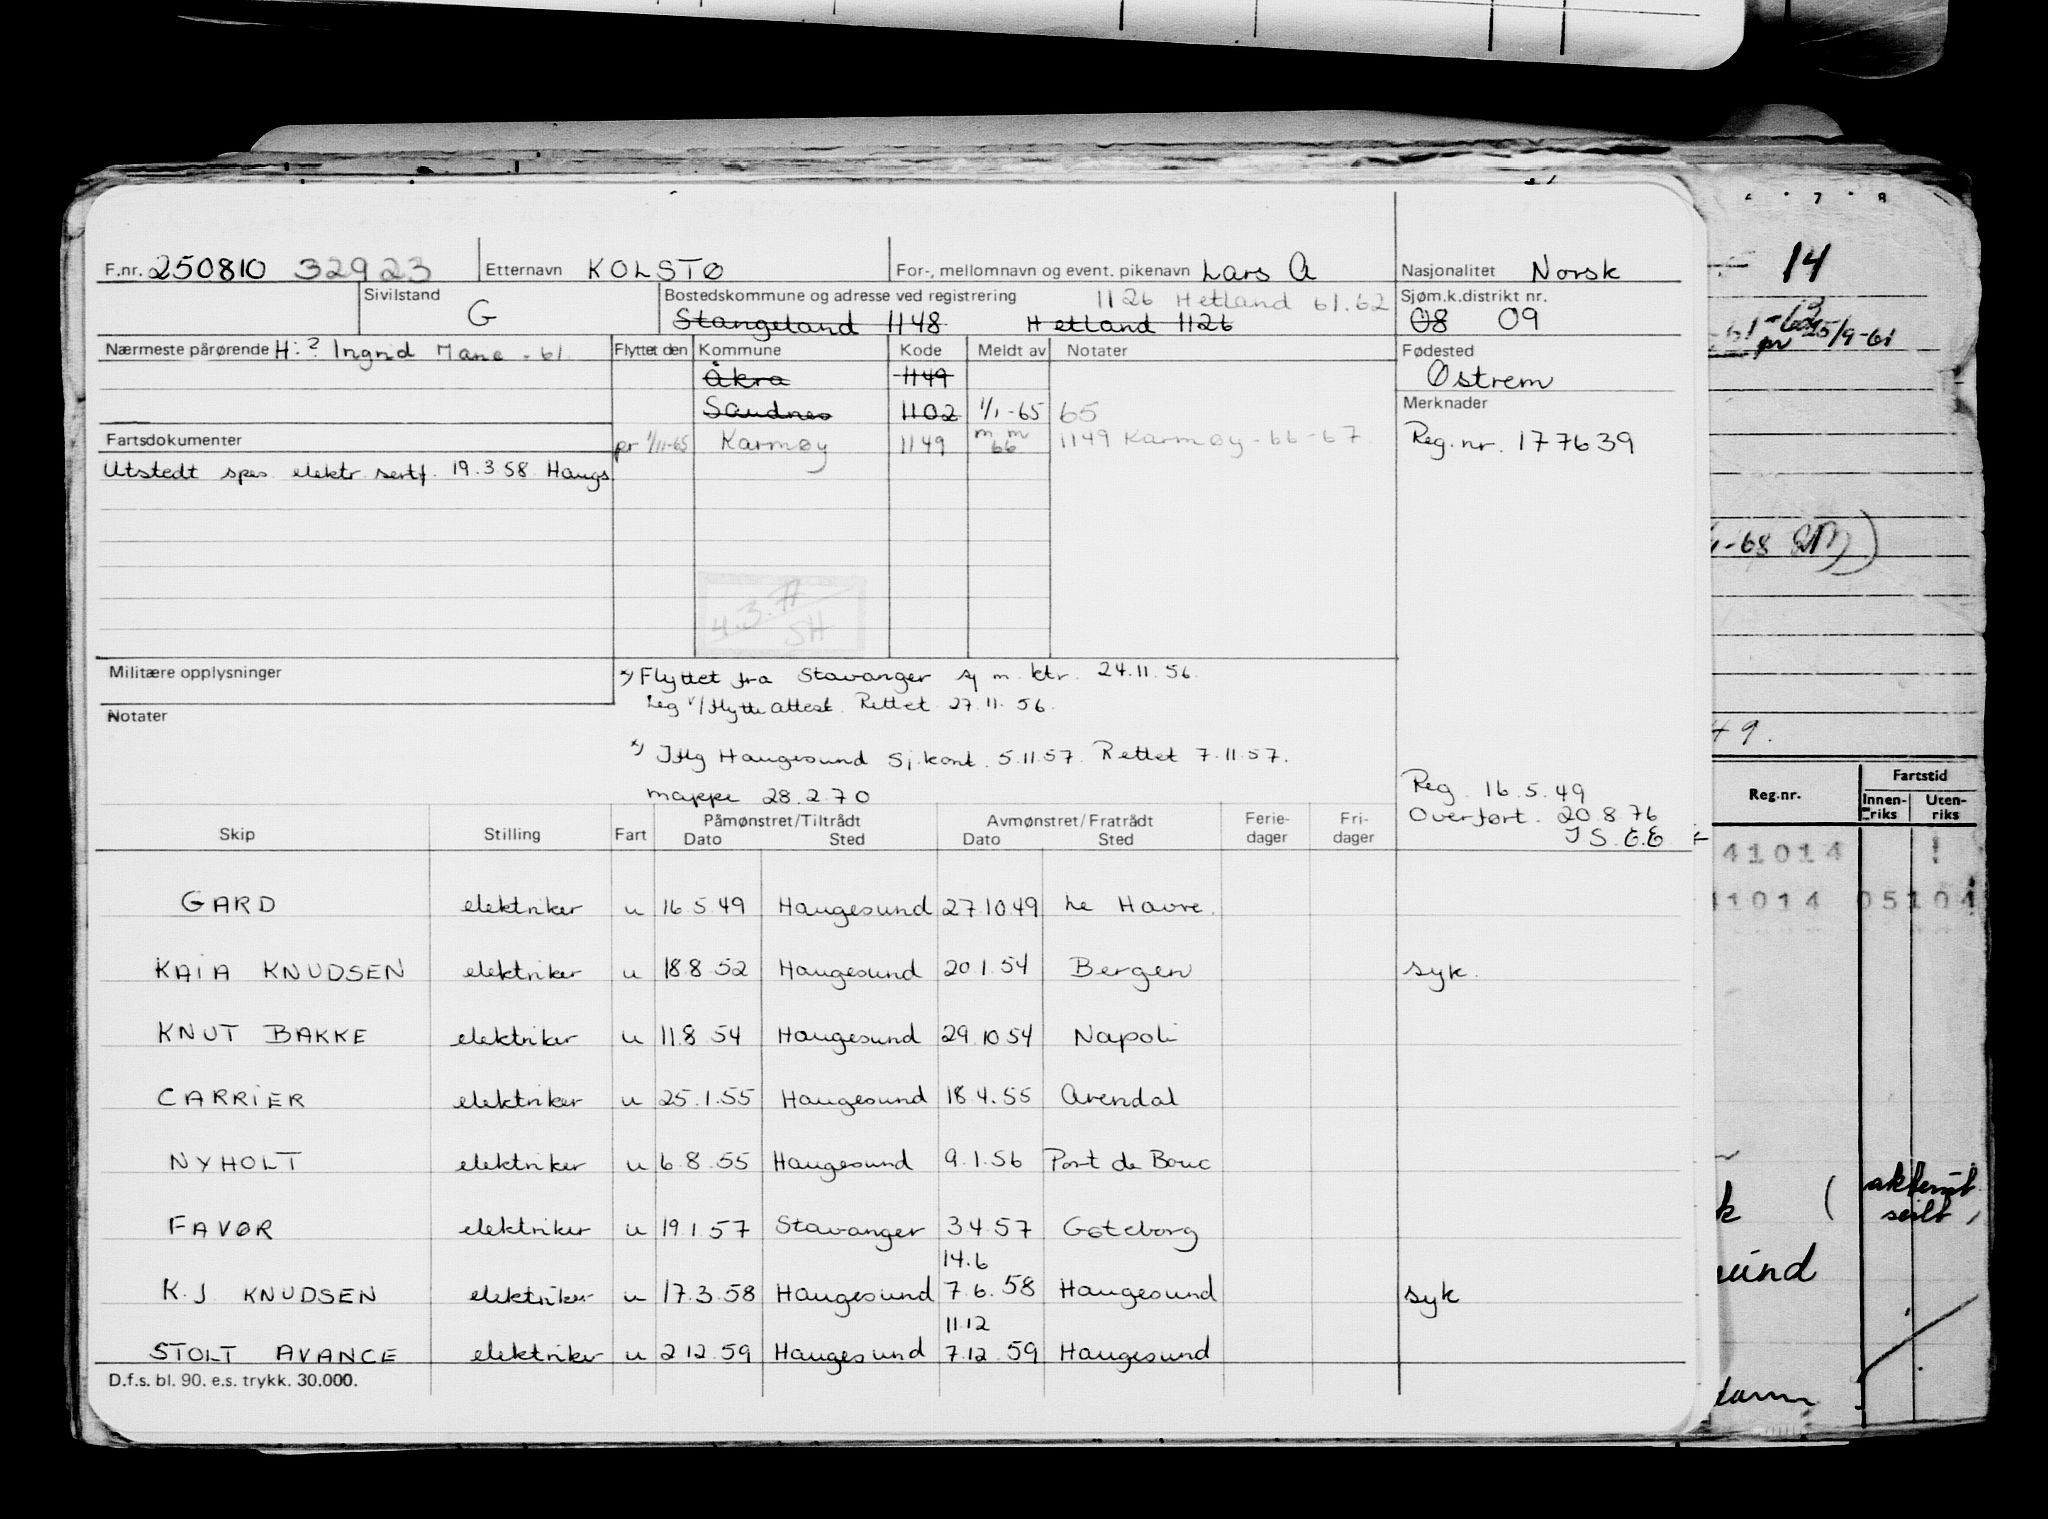 F.nr. 250810 32923 Etternavn KOLSTØ For-, mellomnavn og event. pikenavn Lars A Nasjonalitet Norsk
Sivilstand G Bostedskommune og adresse ved registrering 1126 Hetland 61.62 Sjøm.k.distrikt nr.
Stangeland 1148 Hetland 1126 08 09
Nærmeste pårørende H:? Ingrid Mane - 61. Flyttet den Kommune Kode Meldt av Notater Fødested
Åkra 1149 Østrem
Sandnes 1102 1/1-65 65 Merknader
Fartsdokumenter pr 1/11-65 Karmøy 1149 m.m 66 1149 Karmøy - 66-67 Reg.nr. 177639
Utstedt spes elektr. sertf. 19.3.58 Haugs
4.3.77
SH
Militære opplysninger
x) Flyttet fra Stavanger sj m. ktr. 24.11.56.
Leg v/flytteattest. Rettet 27.11.56.
Notater
x) Iflg Haugesund Sj.kont. 5.11.57. Rettet 7.11.57.
mappe 28.2.70
Reg. 16.5.49
Overført. 20.8.76
I S. E.E
Skip Stilling Fart Påmønstret/Tiltrådt Dato Sted Avmønstret/Fratrådt Dato Sted Ferie-dager Fri-dager
GARD elektriker u 16.5.49 Haugesund 27.10.49 Le Havre.
KAIA KNUDSEN elektriker u 18.8.52 Haugesund 20.1.54 Bergen syk.
KNUT BAKKE elektriker u 11.8.54 Haugesund 29.10.54 Napoli
CARRIER elektriker u 25.1.55 Haugesund 18.4.55 Arendal
NYHOLT elektriker u 6.8.55 Haugesund 9.1.56 Port de Bouc
FAVØR elektriker u 19.1.57 Stavanger 3.4.57 Göteborg
14.6
K.J KNUDSEN elektriker u 17.3.58 Haugesund 7.6.58 Haugesund syk
11.12
STOLT AVANCE elektriker u 2.12.59 Haugesund 7.12.59 Haugesund
D.f.s. bl. 90. e.s. trykk. 30.000.
6 7 8
14
25/9-61
-68
49.
Reg.nr. Fartstid
Innen-riks Uten-riks
41014
41014 05104
seilt